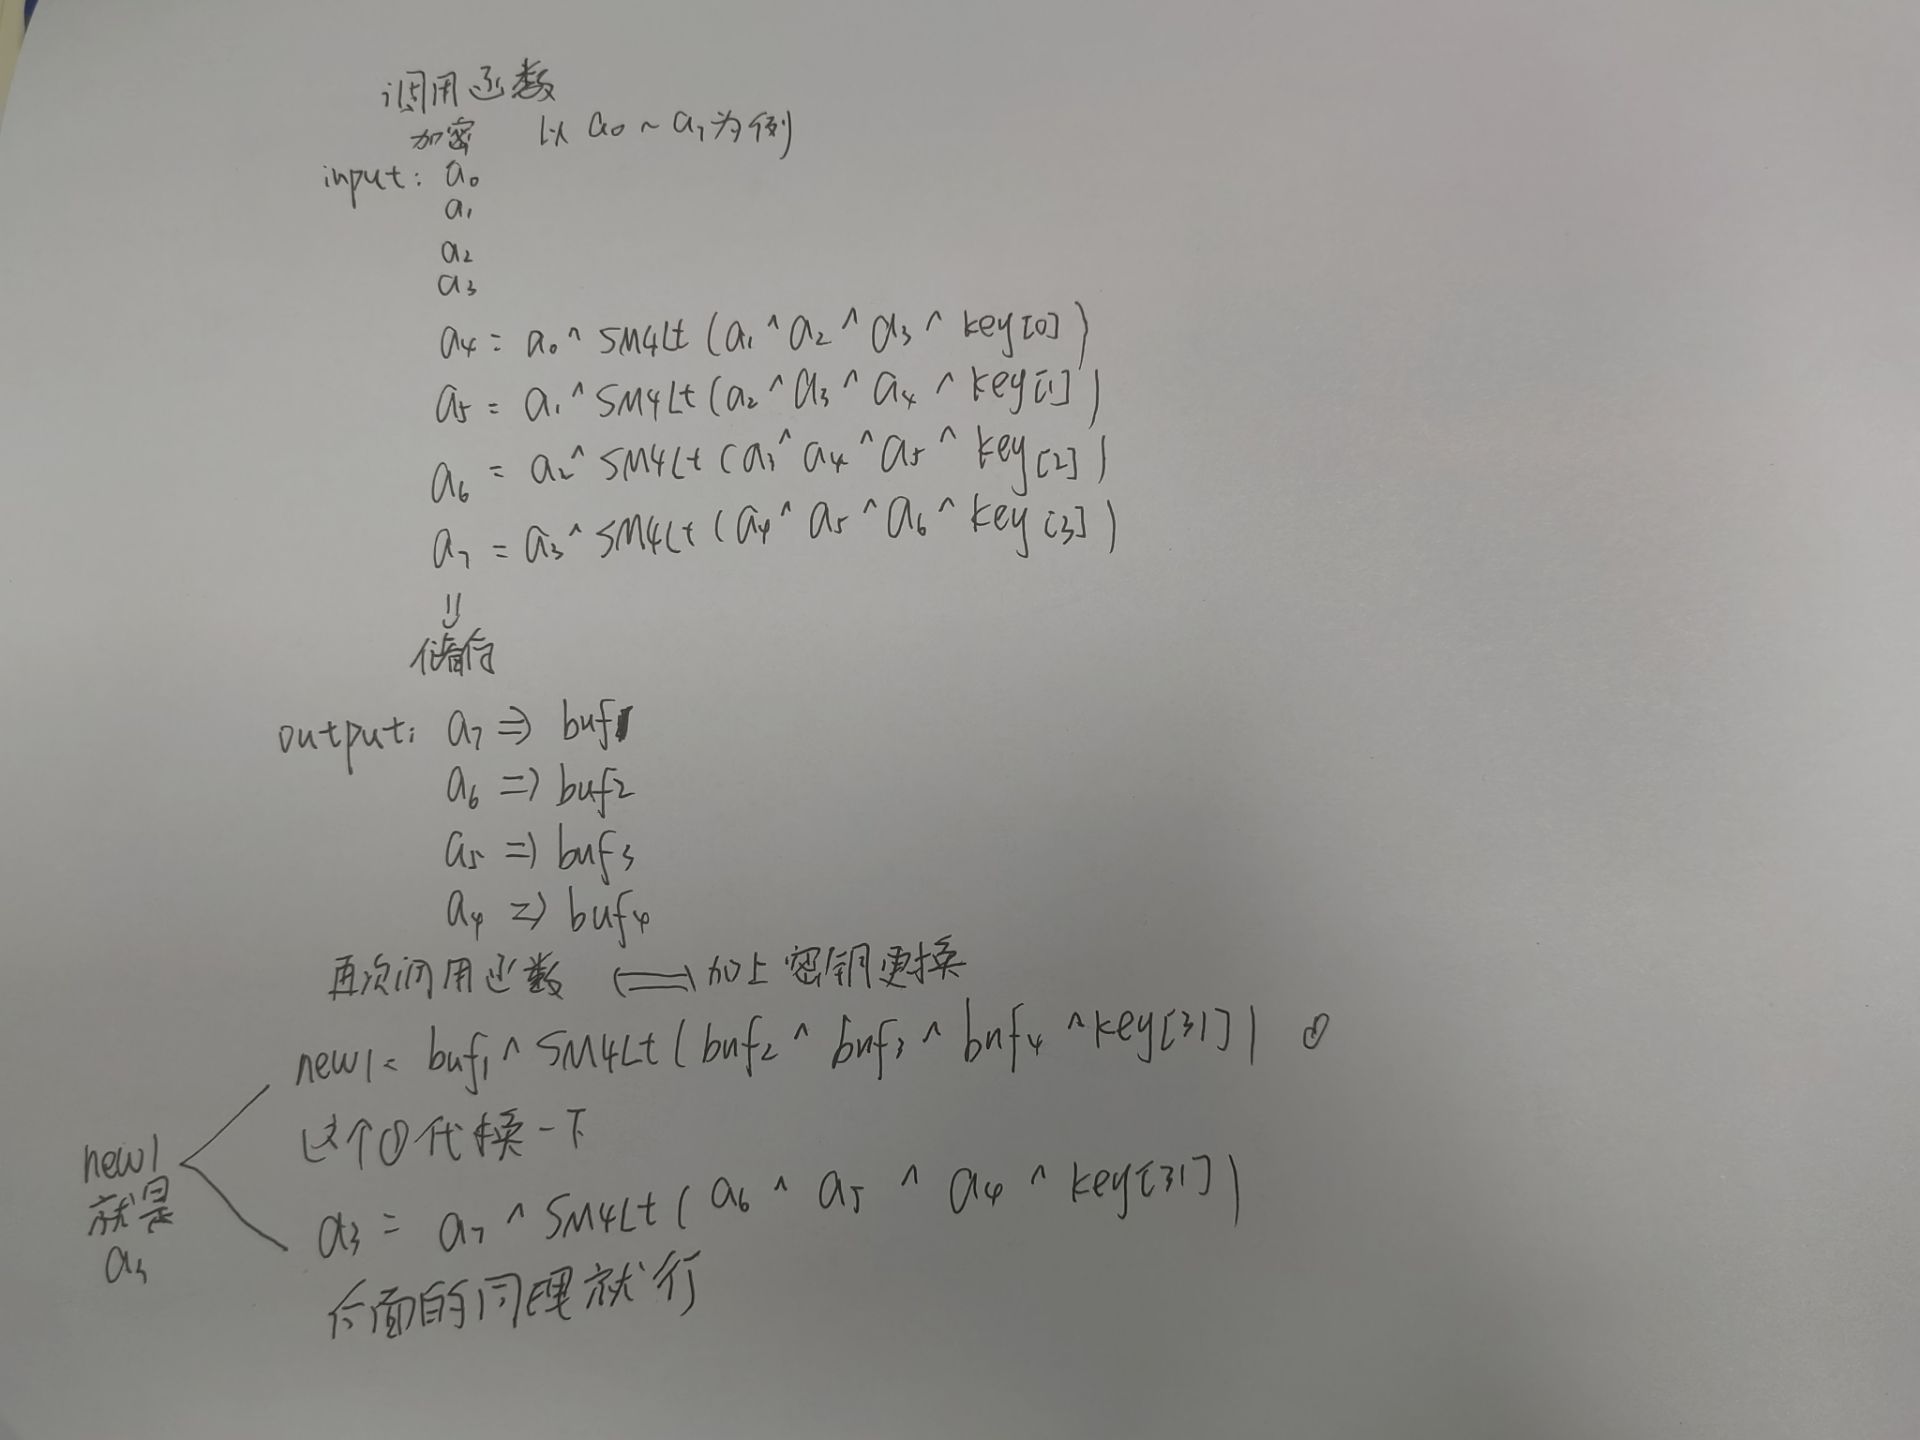 调用函数
加密 以 a₀ ~ a₇ 为例
input: a₀
a₁
a₂
a₃
a₄ = a₀ ^ SM4Lt (a₁ ^ a₂ ^ a₃ ^ key[0])
a₅ = a₁ ^ SM4Lt (a₂ ^ a₃ ^ a₄ ^ key[1])
a₆ = a₂ ^ SM4Lt (a₃ ^ a₄ ^ a₅ ^ key[2])
a₇ = a₃ ^ SM4Lt (a₄ ^ a₅ ^ a₆ ^ key[3])
⇓
储存
output: a₇ ⇒ buf1
a₆ ⇒ buf2
a₅ ⇒ buf3
a₄ ⇒ buf4
再次调用函数 ⟺ 加上密钥更换
new1 = buf1 ^ SM4Lt (buf2 ^ buf3 ^ buf4 ^ key[31]) ①
这个①代换一下
new1
就是
a₃
a₃ = a₇ ^ SM4Lt (a₆ ^ a₅ ^ a₄ ^ key[31])
后面的同理就行